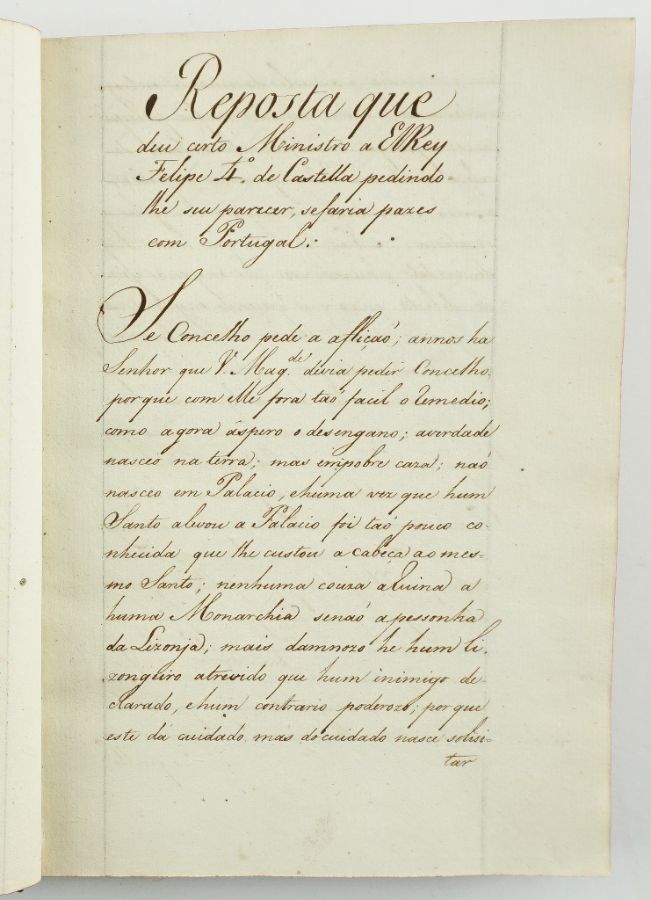 Reposta que
deu certo Ministro a ElRey
Felipe 4.º de Castella pedindo-
lhe seu parecer, se faria pazes
com Portugal.
Se Concelho pede a afliçaõ; annos ha
Senhor que V. Mag.de divia pedir Concelho
porque com elle fora taõ facil o remedio;
como agora áspero o desengano; averdade
nasceo na terra; mas empobre caza; naõ
nasceo em Palacio, ehuma vez que hum
Santo alevou a Palacio foi taõ pouco co-
nhecida que lhe custou a cabeça ao mes-
mo Santo; nenhuma couza aruina a
huma Monarchia senaõ apessonha
da Lizonja; mais damnozo he hum li-
zongeiro atrevido que hum inimigo de-
clarado, ehum contrario poderozo; por que
este dá cuidado mas do cuidado nasce solisi-
tar